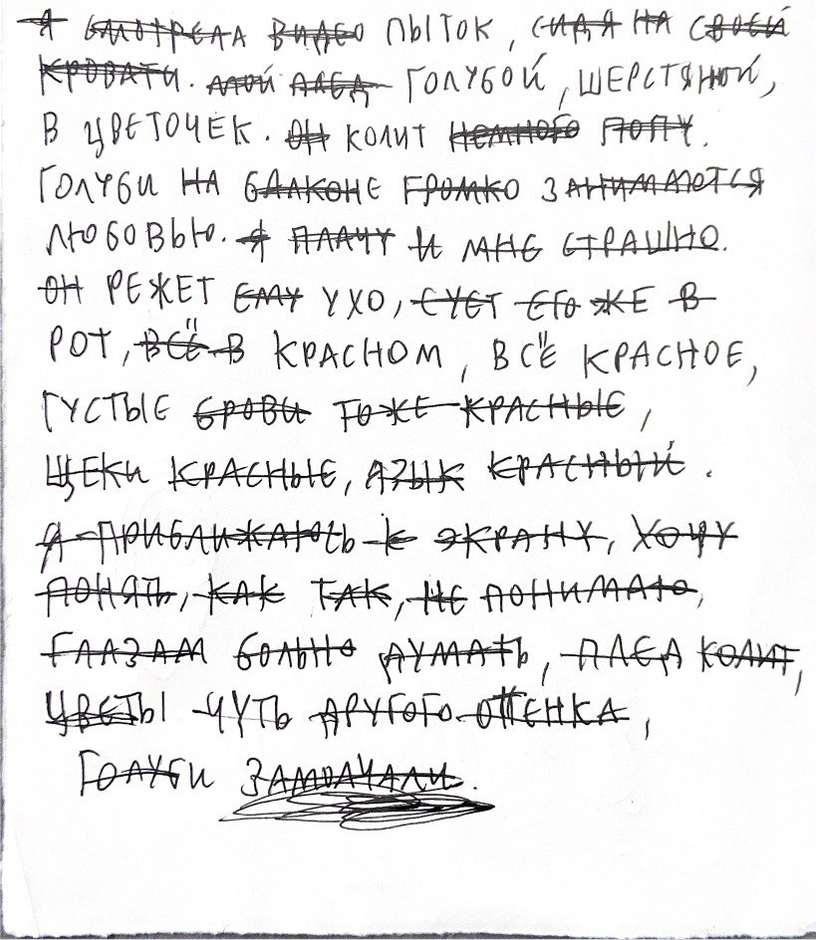 Я СМОТРЕЛА ВИДЕО ПЫТОК, СИДЯ НА СВОЕЙ
КРОВАТИ. МОЙ ПЛЕД ГОЛУБОЙ, ШЕРСТЯНОЙ,
В ЦВЕТОЧЕК. ОН КОЛИТ НЕМНОГО ПОПУ.
ГОЛУБИ НА БАЛКОНЕ ГРОМКО ЗАНИМАЮТСЯ
ЛЮБОВЬЮ. Я ПЛАЧУ И МНЕ СТРАШНО.
ОН РЕЖЕТ ЕМУ УХО, СУЕТ ЕГО ЖЕ В
РОТ, ВСЁ В КРАСНОМ, ВСЁ КРАСНОЕ,
ГУСТЫЕ БРОВИ ТОЖЕ КРАСНЫЕ,
ЩЕКИ КРАСНЫЕ, ЯЗЫК КРАСНЫЙ.
Я ПРИБЛИЖАЮСЬ К ЭКРАНУ, ХОЧУ
ПОНЯТЬ, КАК ТАК, НЕ ПОНИМАЮ,
ГЛАЗАМ БОЛЬНО ДУМАТЬ, ПЛЕД КОЛИТ,
ЦВЕТЫ ЧУТЬ ДРУГОГО ОТТЕНКА,
ГОЛУБИ ЗАМОЛЧАЛИ.